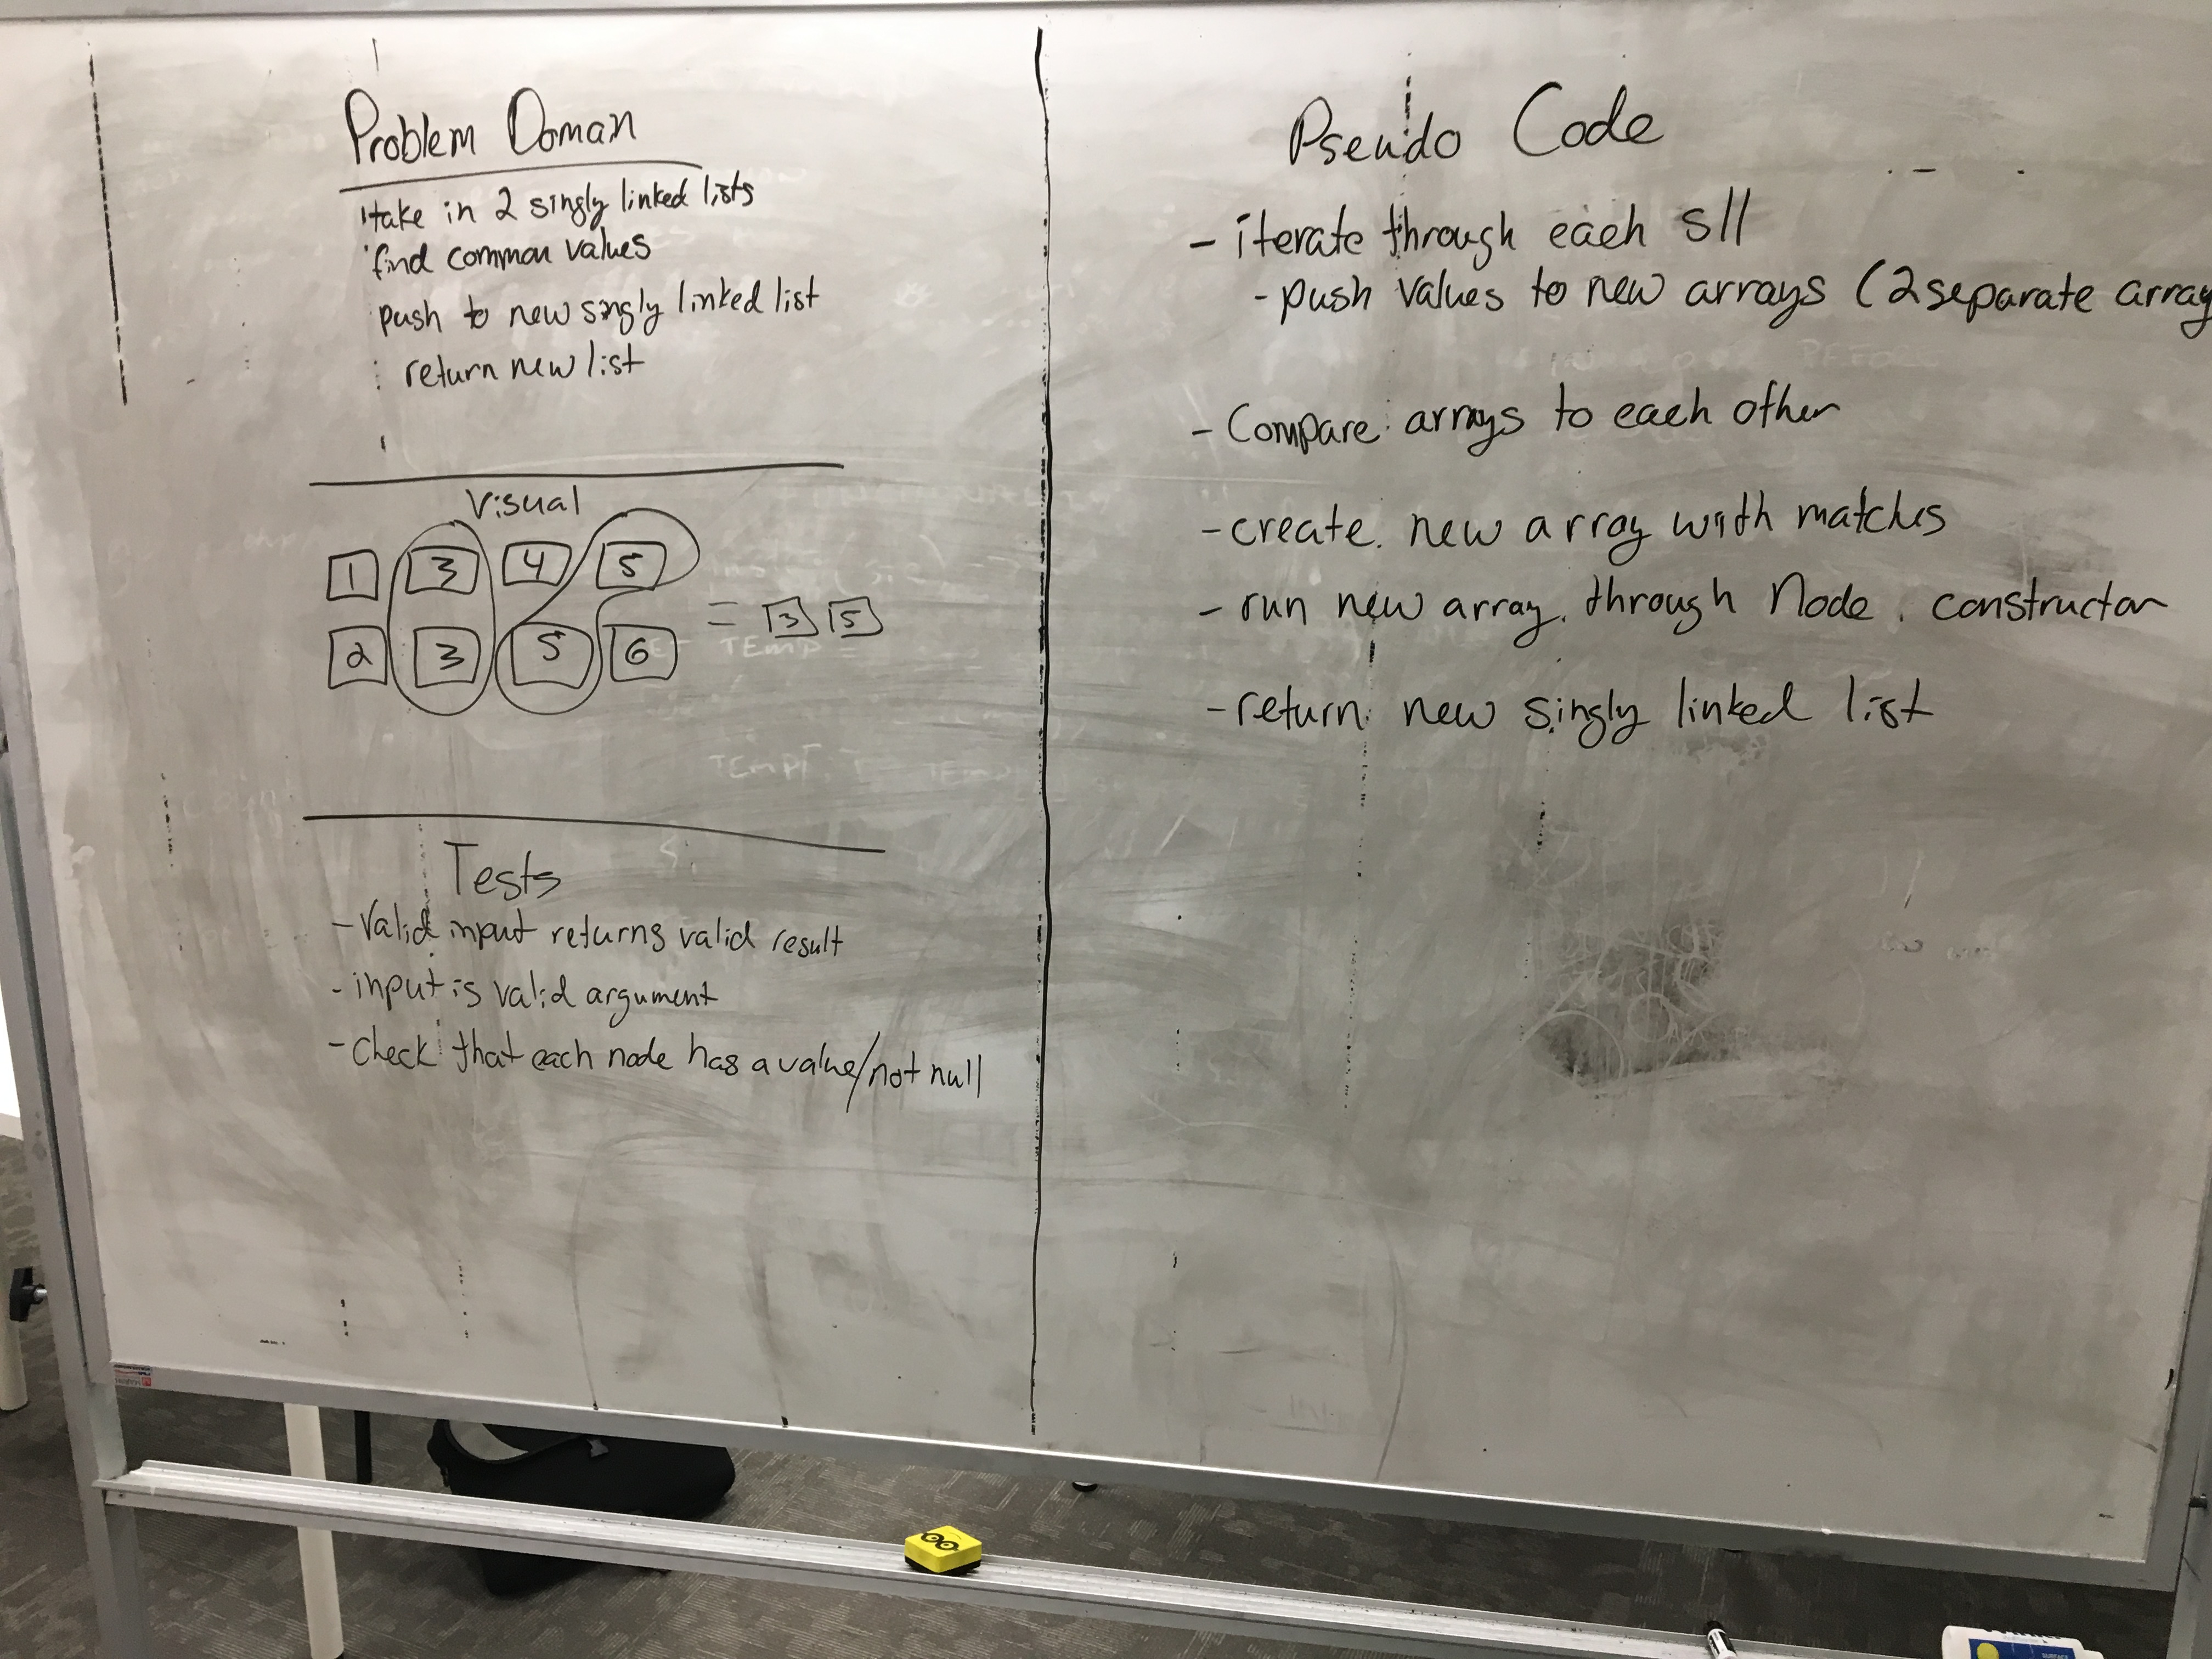 Problem Doman
take in 2 singly linked lists
find common values
push to new singly linked list
return new list
Visual
1 3 4 5
2 3 5 6
= 3 5
Tests
- Valid input returns valid result
- input is valid argument
- Check that each node has a value/not null
Pseudo Code
- iterate through each sll
- push values to new arrays (2 separate array
- Compare arrays to each other
- create new array with matches
- run new array through Node constructor
- return new singly linked list